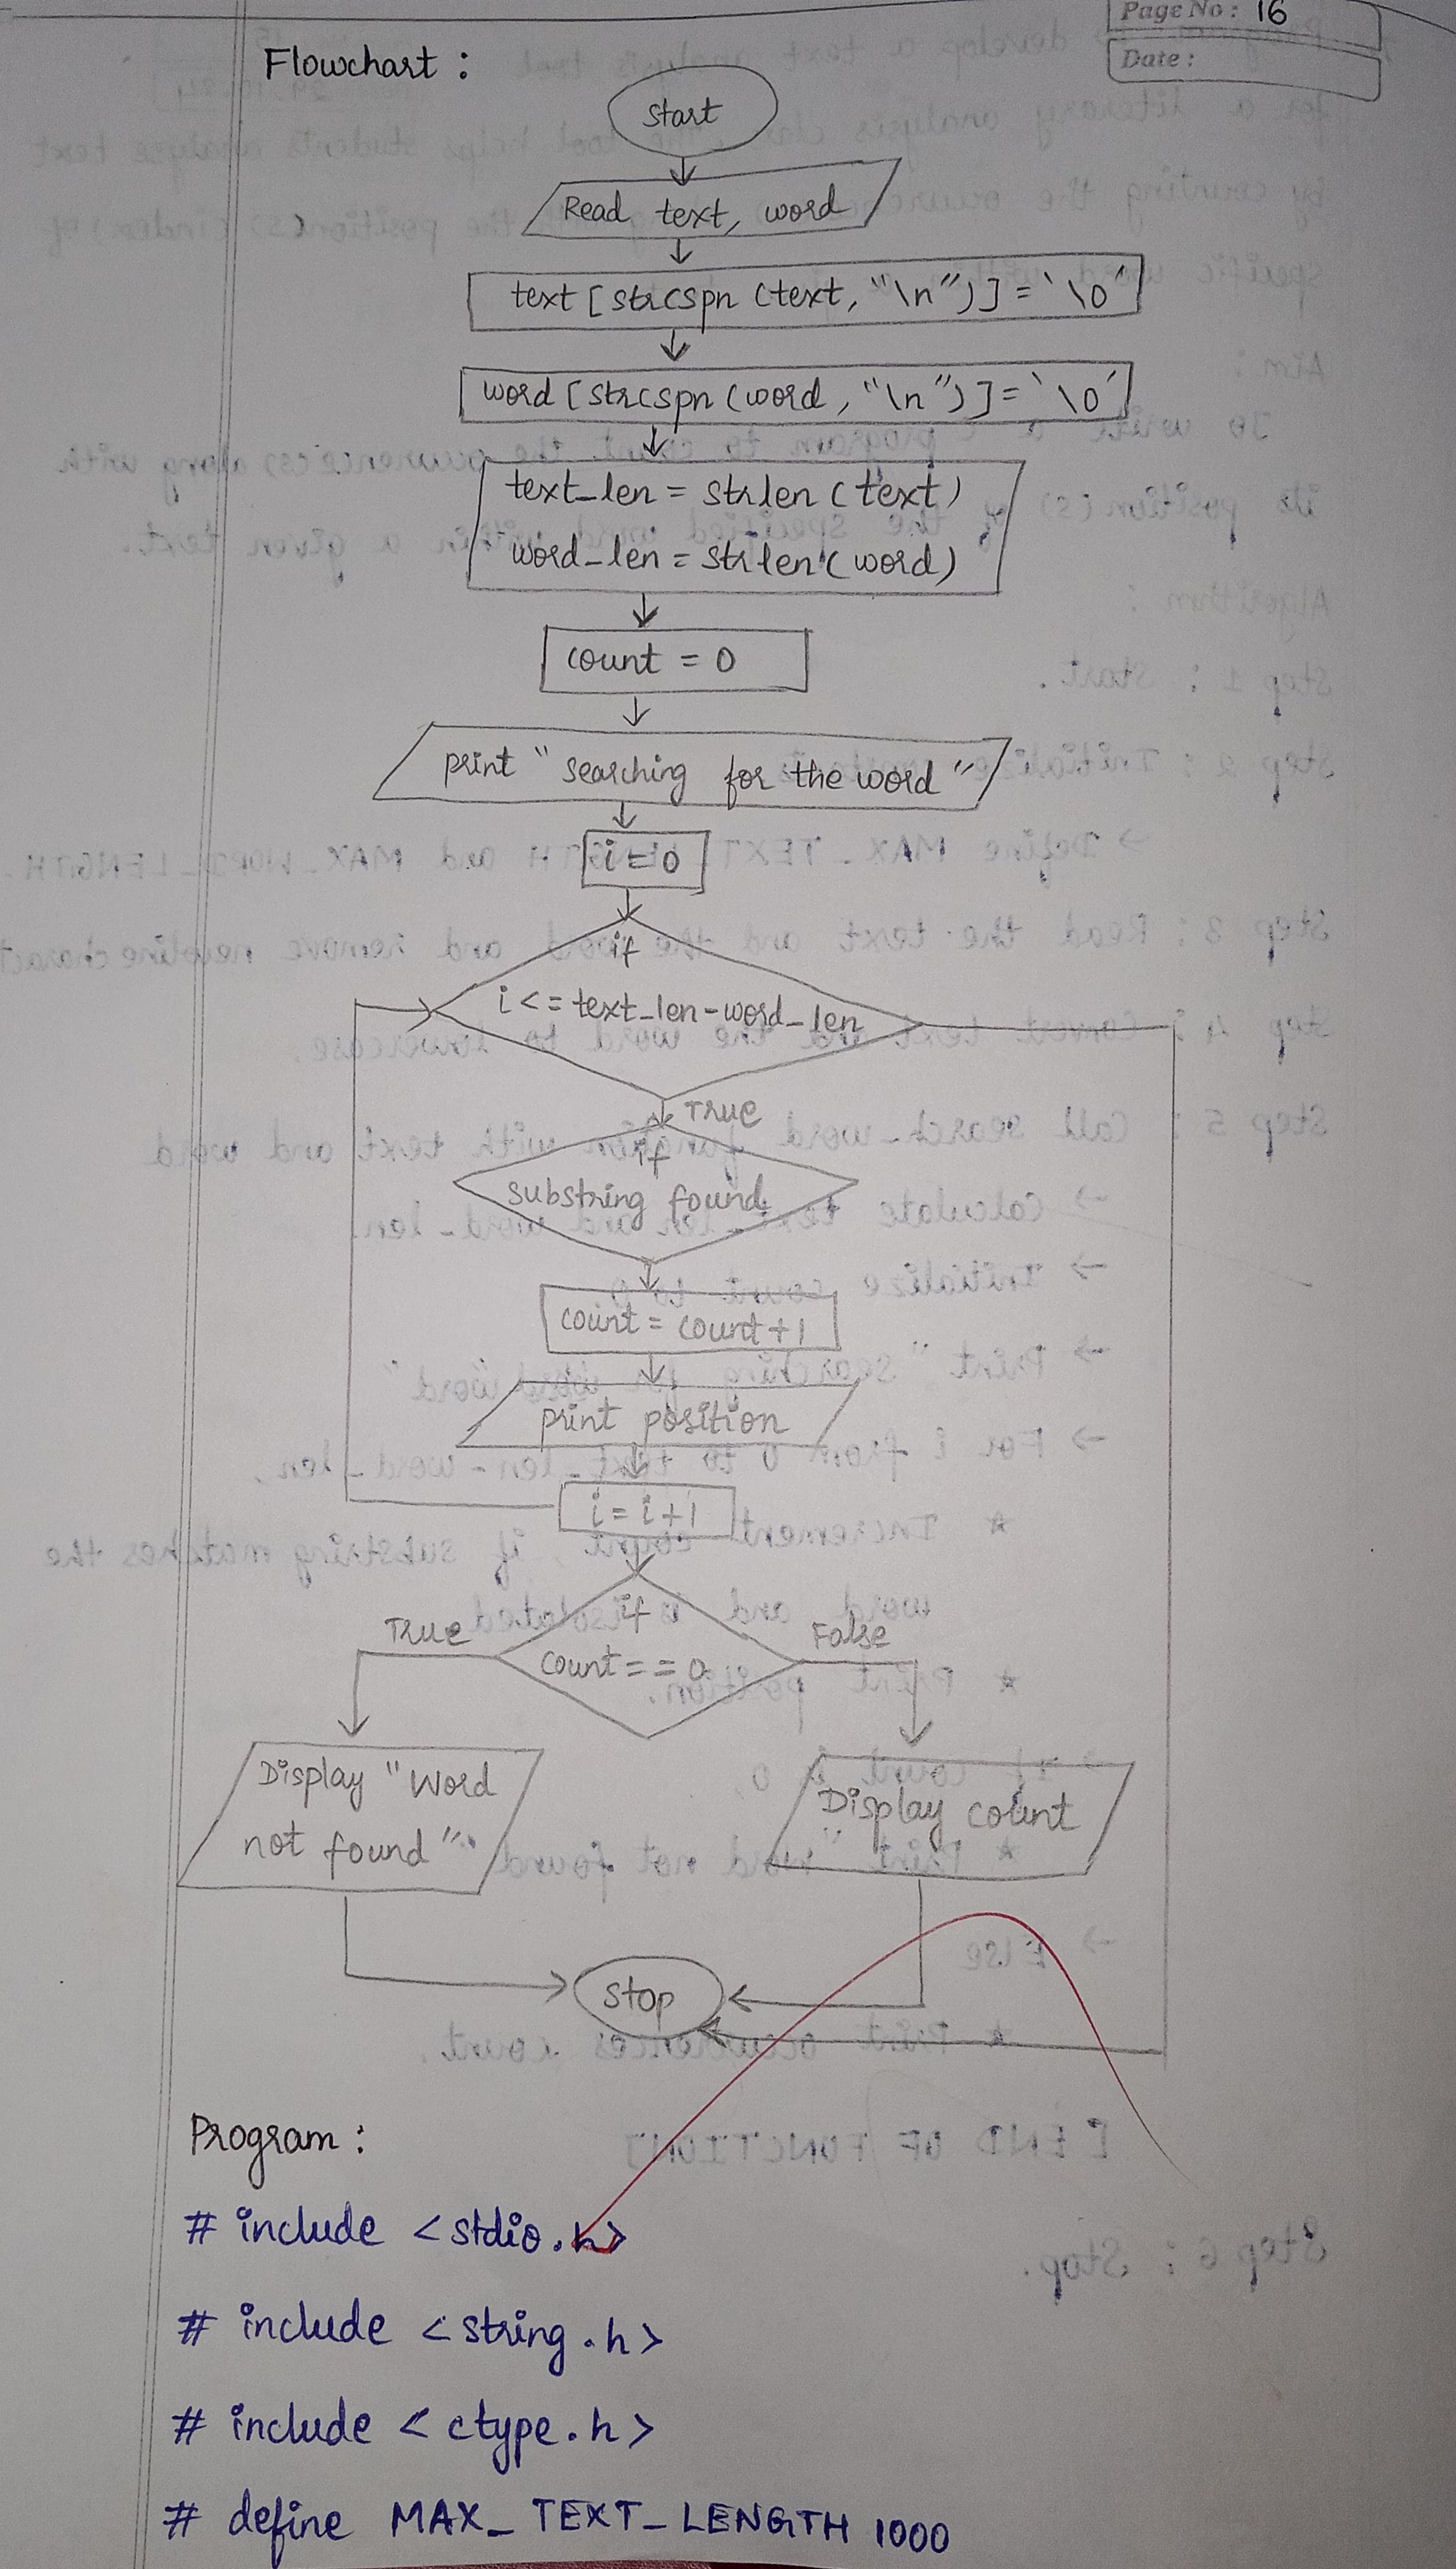 Page No: 16
Date:
Flowchart :
Start
Read text, word
text [strcspn (text, "\n")] = '\0'
word [strcspn (word, "\n")] = '\0'
text_len = strlen (text)
word_len = strlen (word)
count = 0
print " searching for the word "
i = 0
if
i <= text_len - word_len
True
if
substring found
count = count + 1
print position
i = i + 1
if
count == 0
True
False
Display "Word
not found"
Display count
stop
Program :
# include <stdio.h>
# include <string.h>
# include <ctype.h>
# define MAX_TEXT_LENGTH 1000